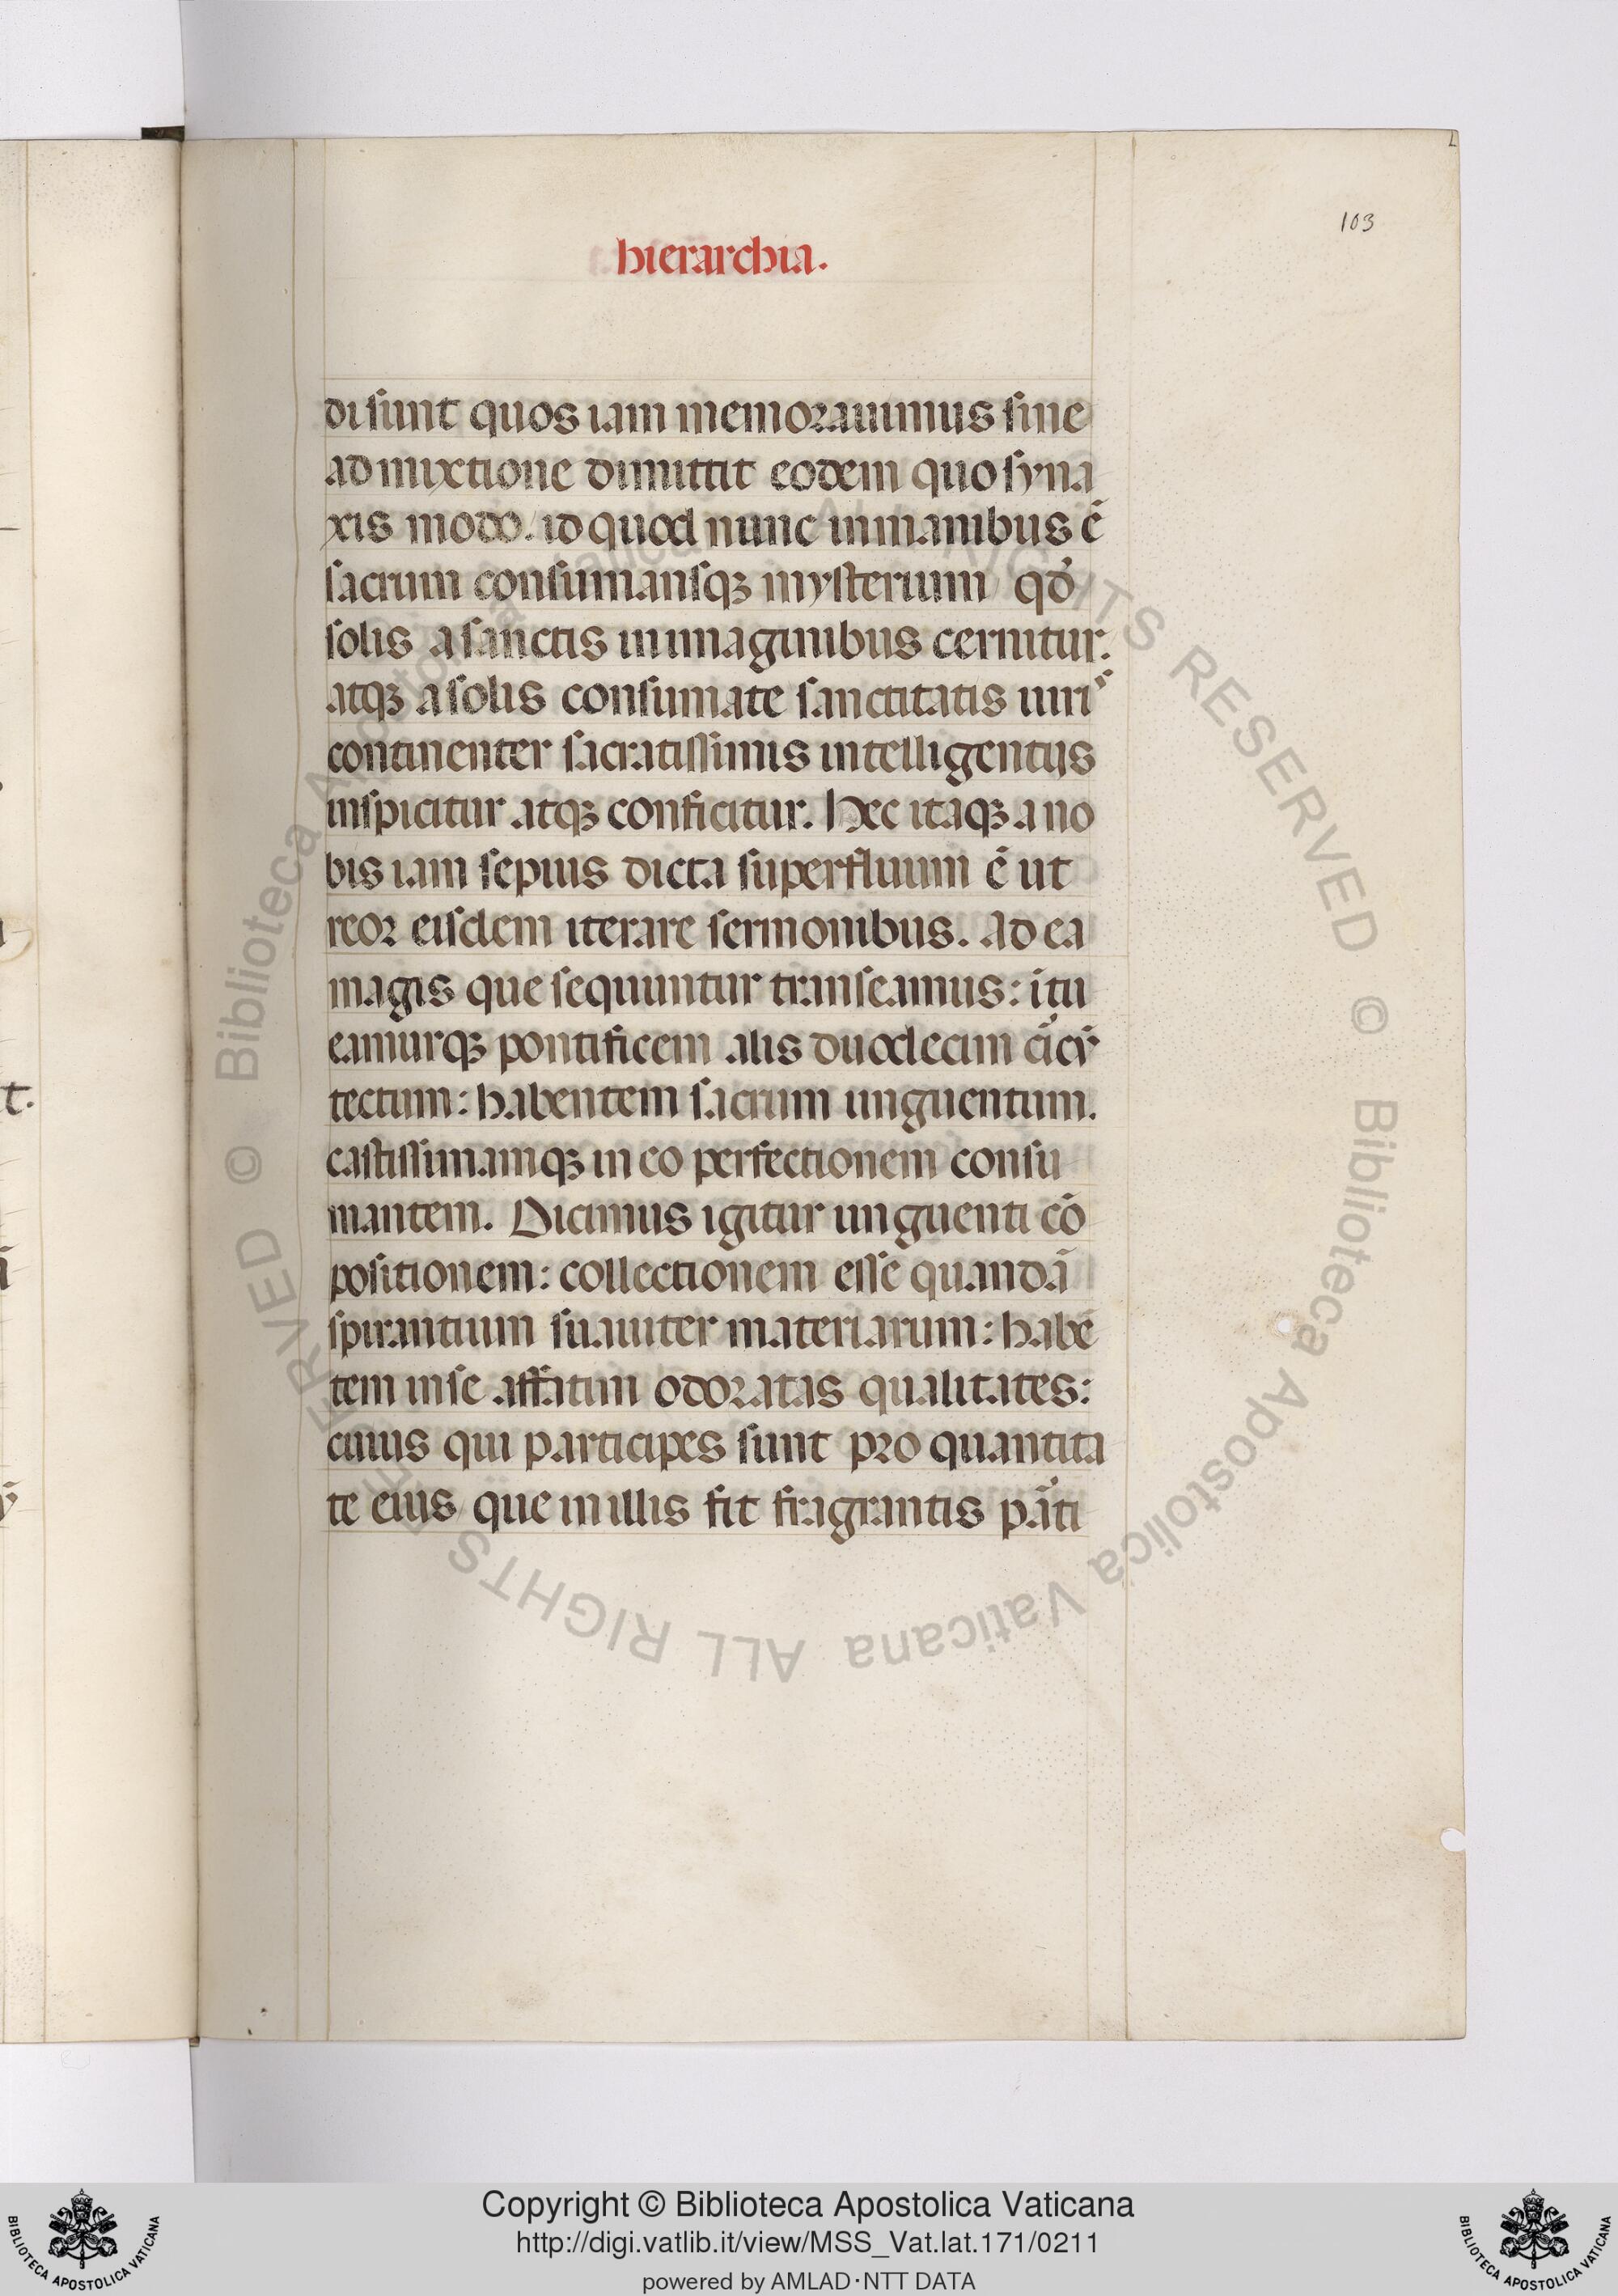 103
hierarchia.
di sunt quos iam memorauimus sine
admixtione dimittit eodem quo syna
xis modo. id quod nunc in manibus ē
sacrum consumansqꝫ mysterium qđ
solis a sanctis in imaginibus cernitur:
atqꝫ a solis consumate sanctitatis uiris
continenter sacratissimis intelligentijs
inspicitur atqꝫ conficitur. Hec itaqꝫ a no
bis iam sepius dicta superfluum ē ut
reor eisdem iterare sermonibus. Ad ea
magis que sequuntur transeamus: itu
eamurqꝫ pontificem alis duodecim
tectum: habentem sacrum unguentum.
castissimamqꝫ in eo perfectionem consu
mantem. Dicimus igitur unguenti cō
positionem: collectionem esse quandā
spirantium suauiter materiarum: habē
tem in se affatim odoratas qualitates:
cuius qui participes sunt pro quantita
te eius que in illis fit fragrantis
t.
© Biblioteca Apostolica Vaticana ALL RIGHTS RESERVED © Biblioteca Apostolica Vaticana ALL RIGHTS RESERVED
Copyright © Biblioteca Apostolica Vaticana
http://digi.vatlib.it/view/MSS_Vat.lat.171/0211
powered by AMLAD·NTT DATA
BIBLIOTECA APOSTOLICA VATICANA
BIBLIOTECA APOSTOLICA VATICANA